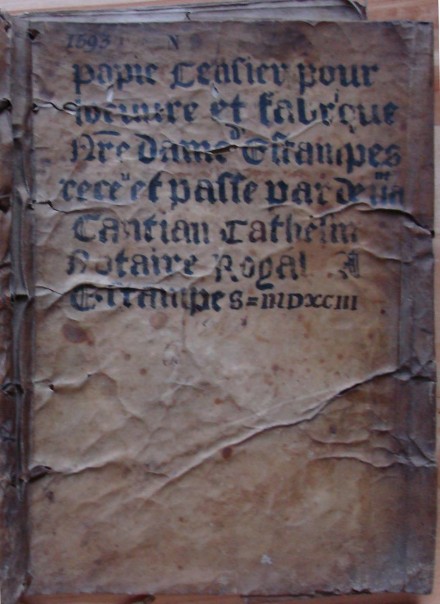 1593 N
papie Censier pour
loeuure et fabrique
Nre dame d' Estampes
rece et passe par de
Cantian Cathelin
Notaire Royal A
Estampes = MDXCIII